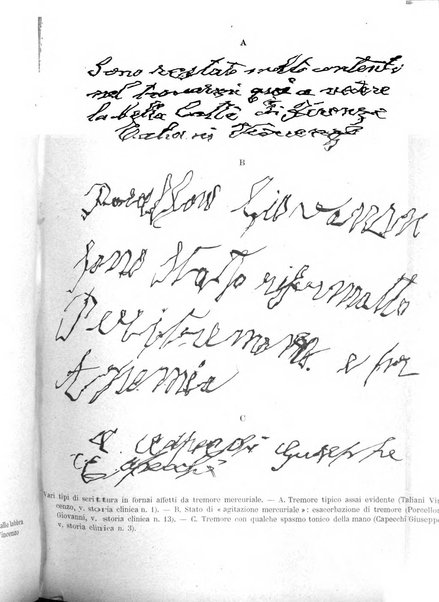 A
Sono restato molto contento
nel trovarmi quà a vedere
la bella Città di Firenze
Taliani Vincenzo
B
Porcellon Giovannni
sono stato riformatto
Per il tremore e per
Anemia
C
Capecchi Giuseppe
Capecchi
Vari tipi di scrittura in fornai affetti da tremore mercuriale. — A. Tremore tipico assai evidente (Taliani Vin
cenzo, v. storia clinica n. 1). — B. Stato di « agitazione mercuriale »: esacerbazione di tremore (Porcellon
Giovanni, v. storia clinica n. 13). — C. Tremore con qualche spasmo tonico della mano (Capecchi Giuseppe
v. storia clinica n. 3).
allo labbra
Vincenzo